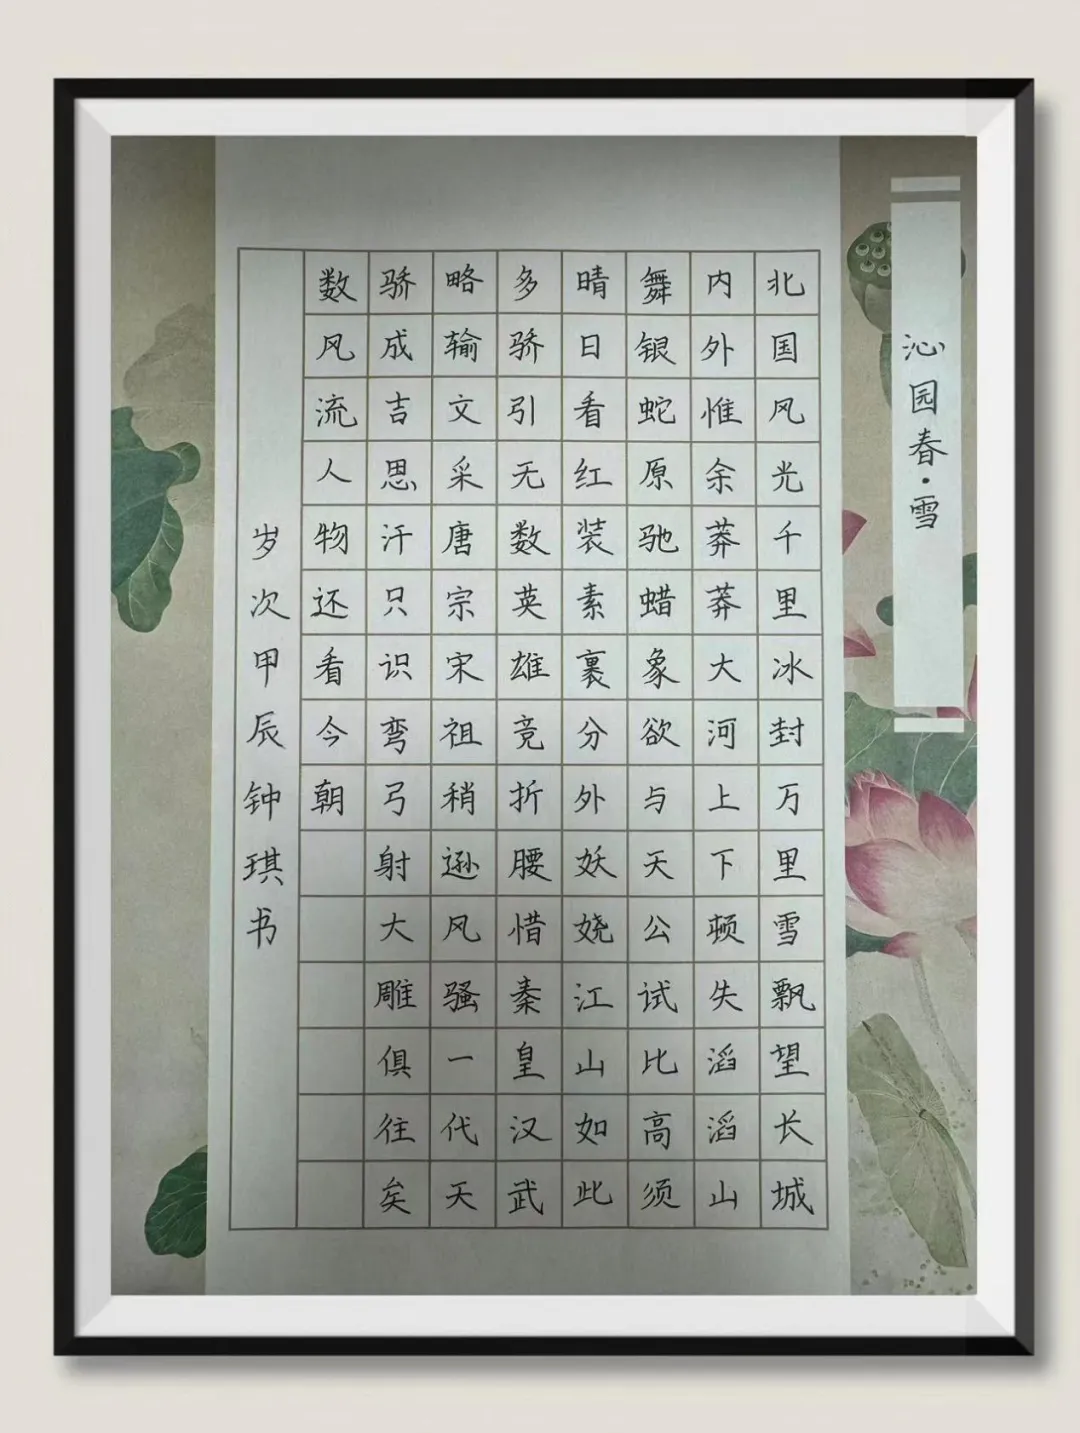 沁园春·雪
北国风光千里冰封万里雪飘望长城
内外惟余莽莽大河上下顿失滔滔山
舞银蛇原驰蜡象欲与天公试比高须
晴日看红装素裹分外妖娆江山如此
多骄引无数英雄竞折腰惜秦皇汉武
略输文采唐宗宋祖稍逊风骚一代天
骄成吉思汗只识弯弓射大雕俱往矣
数风流人物还看今朝
岁次甲辰钟琪书